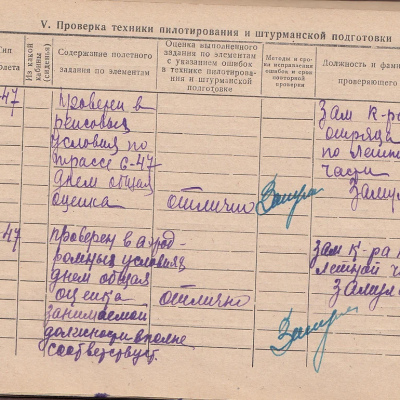 V. Проверка техники пилотирования и штурманской подготовки
Тип
лета
Из какой
кабины
(сиденья)
Содержание полетного
задания по элементам
Оценка выполненного
задания по элементам
с указанием ошибок
в технике пилотирова-
ния и штурманской
подготовке
Методы и сро-
ки исправления
ошибок и срок
повторной
проверки
Должность и фами
проверяющего
-47
Проверен в
рейсовых
условиях по
трассе С-47
днем общая
оценка отлично
Зам к-ра
отряда
по летно
части
-47
Проверен в аэрод-
ромных условиях
днем общая
оценка отлично
занимаемой
должности вполне
соответствует.
Зам к-ра
летной ч